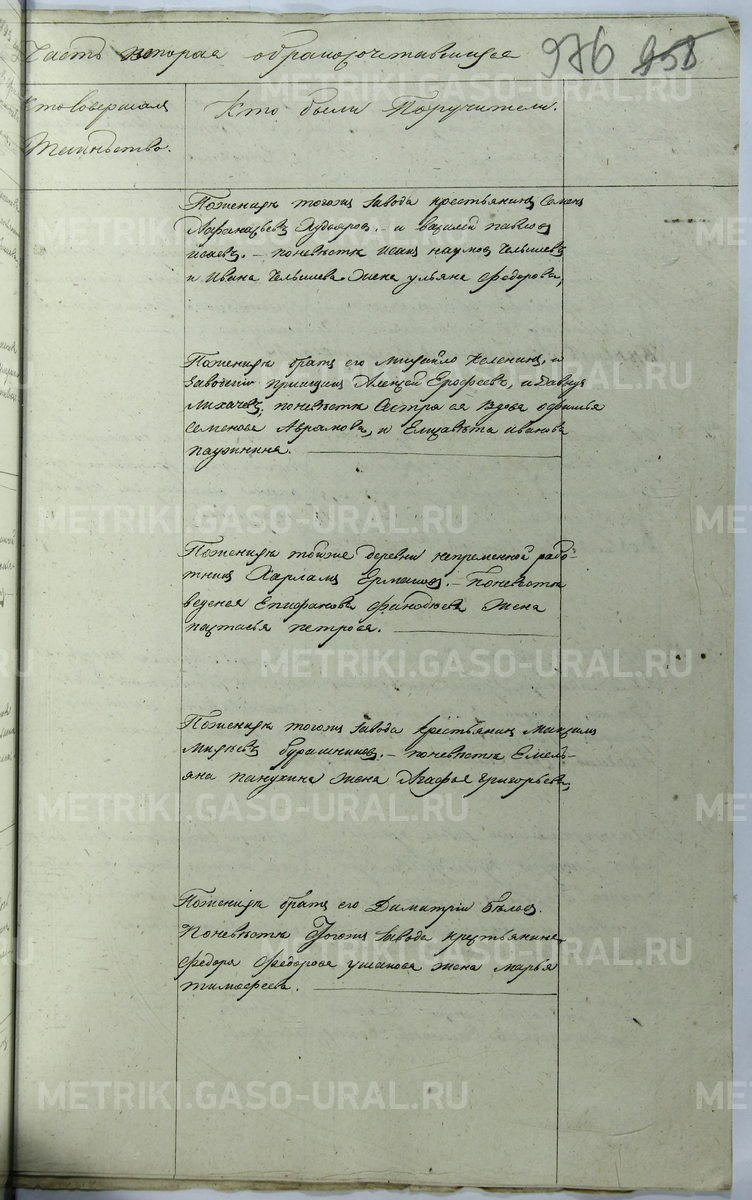 Часть вторая обрачосочетавшихся
976 958
Кто Совершал
Таинъство.
Кто были Поручители.
Поженихѣ тогожъ завода крестьянинъ Семенъ
Афанасьевъ Худояровъ. - и василей павловъ
исаевъ. - поневѣстѣ исаакъ наумовъ Челышевъ
и Ивана Челышева Жена ульяна Федорова,
Поженихѣ братъ его михайло Келенинъ, и
заводской прикащикъ Алексей Ерофеевъ, и давыдъ
Лихачевъ, поневѣстѣ Сестра ея вдова офимья
семенова Аврамова, и Елизавѣта иванова
Поженихѣ тойже деревни непременной рабо-
тникъ Харламъ Ермаковъ. - Поневѣстѣ
Епифанова Жена
настасья петрова.
Поженихѣ тогожъ завода крестьянинъ Максимъ
поневѣстѣ Емель-
яна пичугина Жена Агафья Григорьева,
Поженихѣ братъ его Димитрій Бѣловъ.
Поневѣстѣ Тогожъ завода крестьянина
Федора Федорова ушакова жена марья
тимофеева.
METRIKI.GASO-URAL.RU